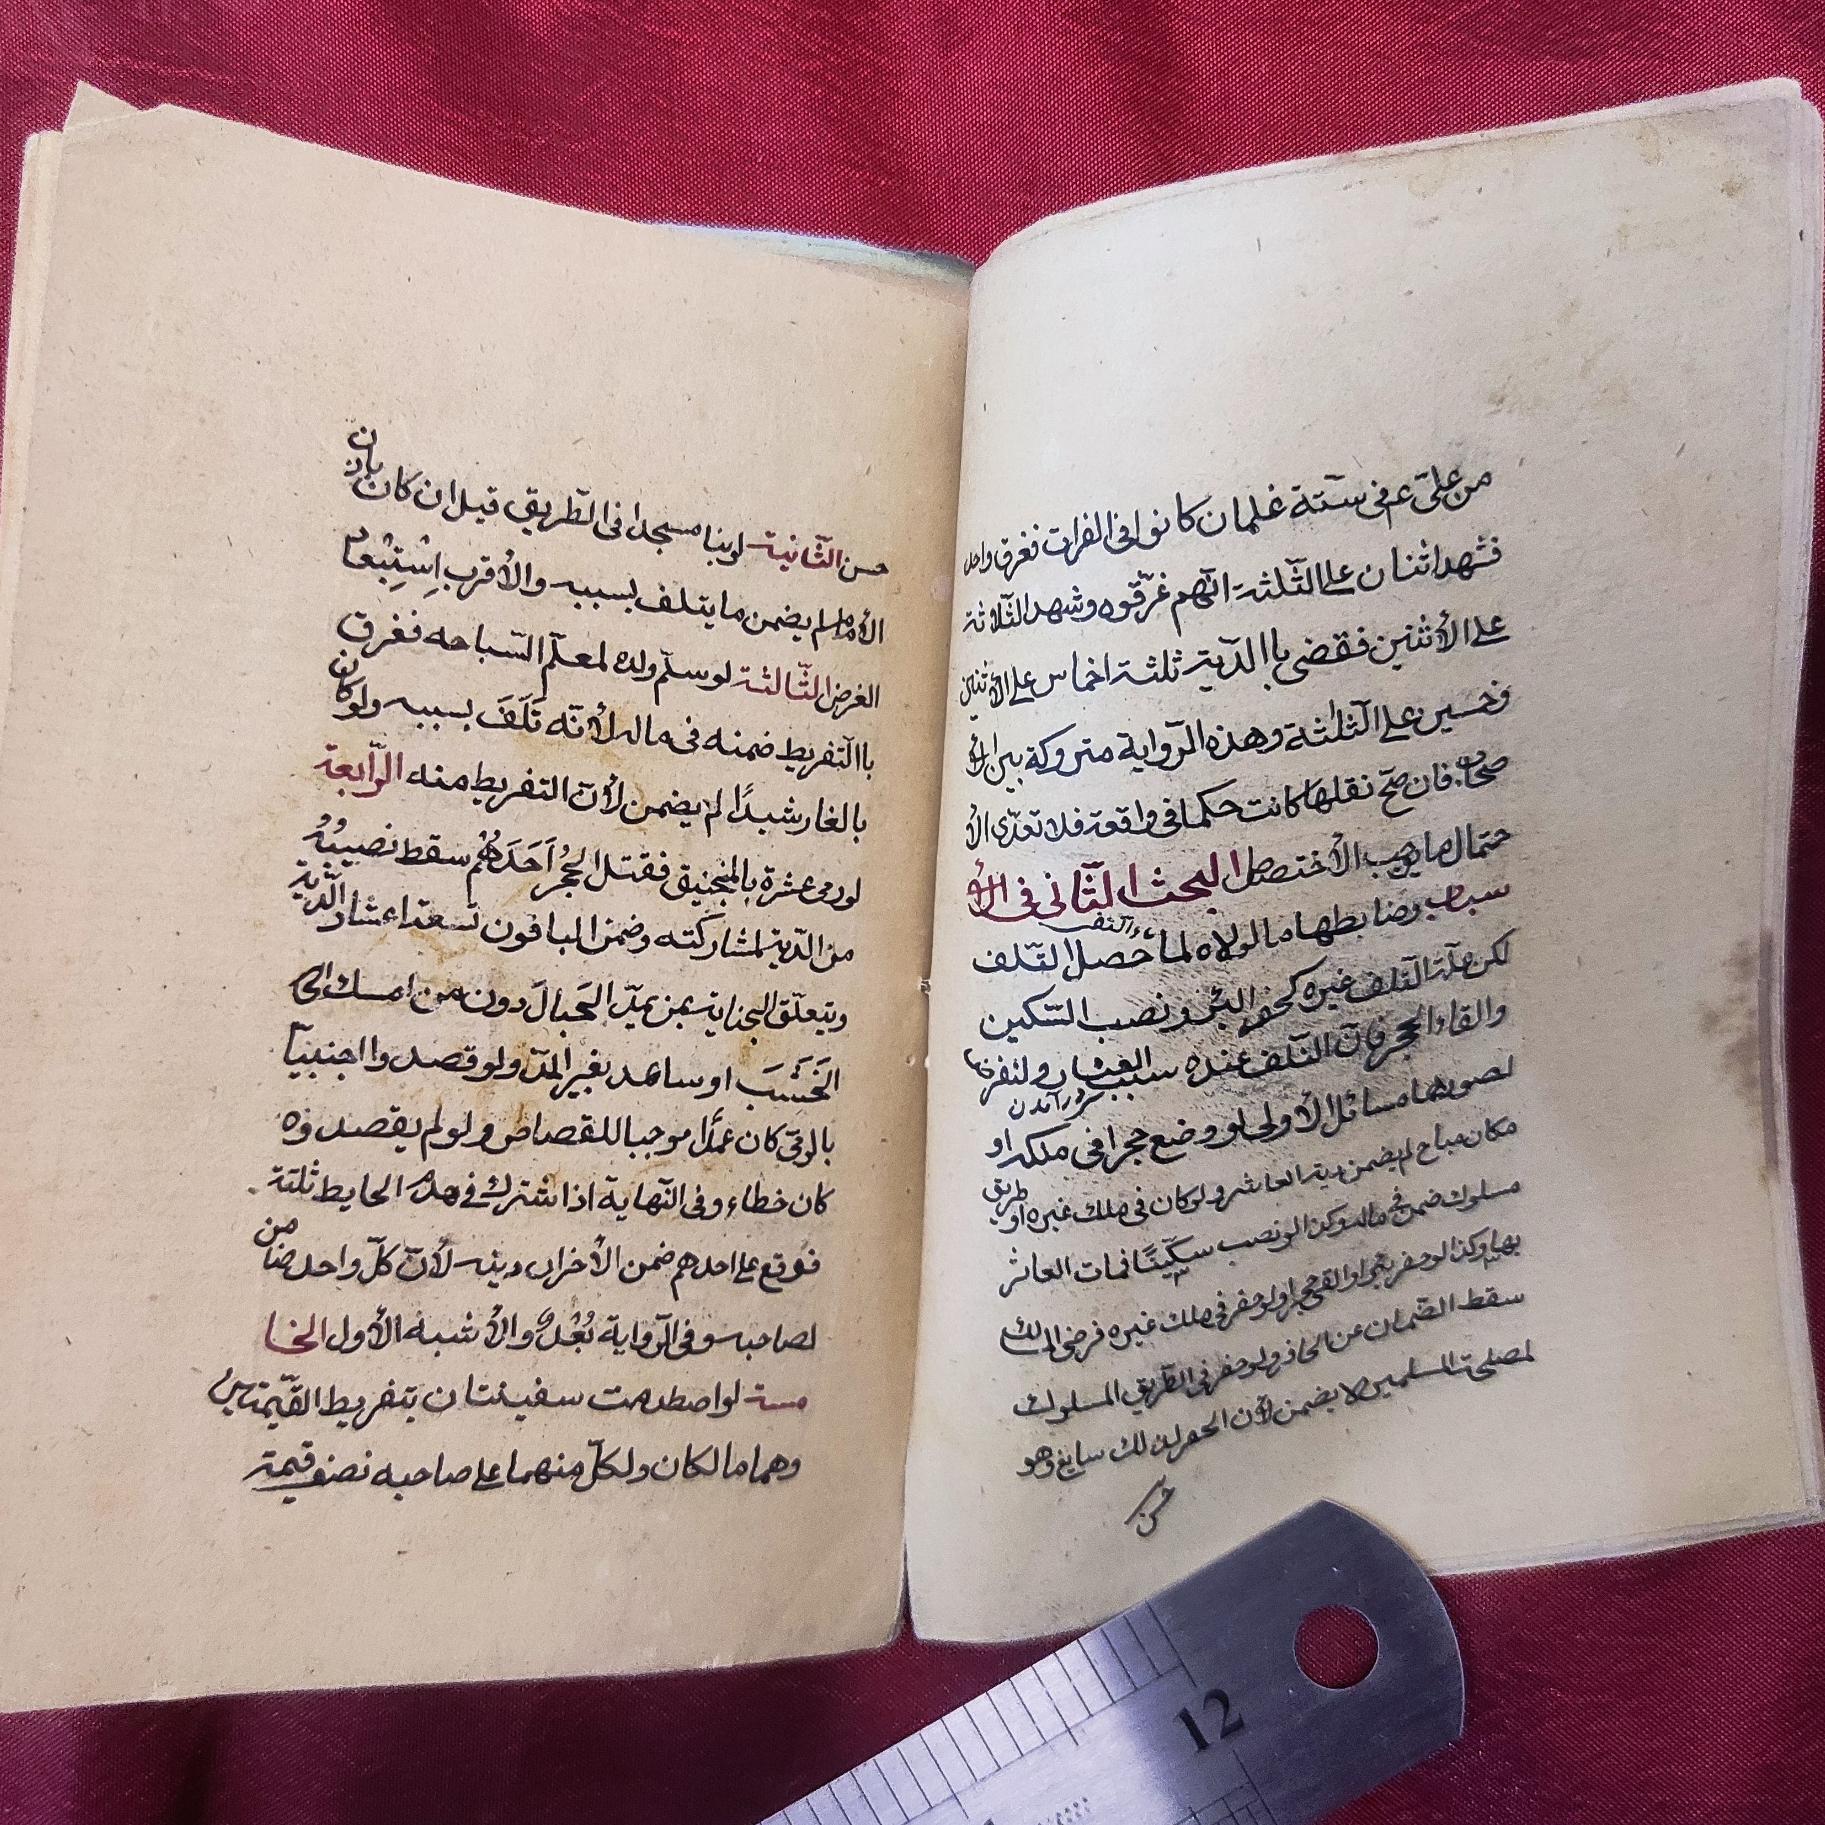 من علىّ ع فى ستة غلمان كانوا فى الفرات فغرق واحد
فشهد اثنان على الثّلثة انّهم غرّقوه وشهد الثّلاثة
على الأثنين فقضى باالدّية ثلثة اخماس على الأثنين
وخمسين على الثلثة وهذه الرّواية متروكة بين الأ
صحاب فان صحّ نقلها كانت حكما فى واقعة فلا تعدّى الأ
حتمال ما يوجب الأختصاص البحث الثّانى فى الأ
سباب وضابطها ما لولاه لما حصل التّلف
لكن علّة التّلف غيره كحفر البئر ونصب السّكين
والقاء الحجر فانّ التّلف عنده بسبب العثار ولنفرض
لصورها مسائل الأولى لو وضع حجرا فى ملكه او
مكان مباح لم يضمن دية العاثر ولو كان فى ملك غيره او طريق
مسلوك ضمن فى ماله وكذا لو نصب سكّينًا فمات العاثر
بها وكذا لو حفر بئرا او القى حجرا ولو حفر فى ملك غيره فرضى المالك
سقط الضّمان عن الحافر ولو حفر فى الطّريق المسلوك
لمصلحة المسلمين لا يضمن لأن الحفر لذلك سايغ وهو
حسن
حسن الثّانية لو بنا مسجدا فى الطّريق قيل ان كان باذن
الأمام لم يضمن ما يتلف بسببه والأقرب اِسْتِبْعاد
الفرض الثّالثة لو سلّم ولده لمعلّم السّباحه فغرق
باالتّفريط ضمنه فى ماله لأنّه تَلَفَ بسببه ولو كان
بالغا رشيدًا لم يضمن لأنّ التفريط منه الرّابعة
لو رمى عشرة بالمنجنيق فقتل الحُجُر اَحَدَهُمْ سقط نصيبُهُ
من الدّية لمشاركته وضمن الباقون تسعة اعشار الدّية
ويتعلّق الجناية بمن يمدّ الحَبالَ دون من امسك
الخَشَبَ او ساعد بغير المدّ ولو قصدوا اجنبيّا
بالرّمى كان عمدًا موجبا للقصاص ولو لم يقصدوه
كان خطاء وفى النّهاية اذا اشترك فى هدم الحايط ثلثة
فوقع على احدهم ضمن الأخران ديته لأنّ كلّ واحد ضامن
لصاحبه وفى الرّواية بُعْدٌ والأشبه الأول الخا
مسة لو اصطدمت سفينتان بتفريط القيّمين
وهما مالكان ولكلّ منهما على صاحبه نصف قيمة